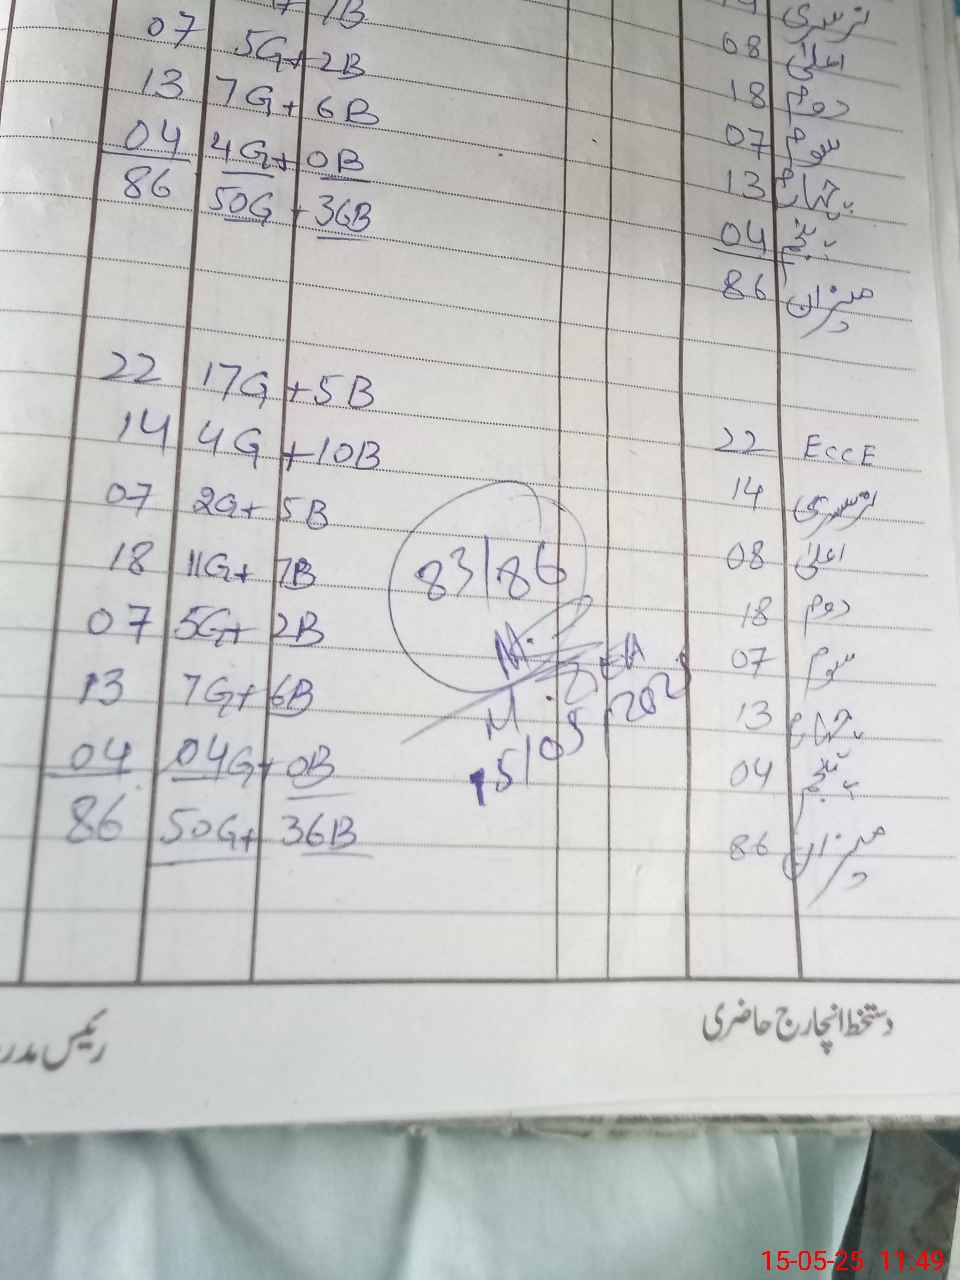 07 5G+2B 08 اعلیٰ
13 7G+6B 18 دوم
04 4G+0B 07 سوم
86 50G+36B 13 چہارم
04 پنجم
86 میزان
22 17G+5B 22 ECCE
14 4G+10B 14 نرسری
07 2G+5B 08 اعلیٰ
18 11G+7B 18 دوم
07 5G+2B 07 سوم
13 7G+6B 13 چہارم
04 04G+0B 04 پنجم
86 50G+36B 86 میزان
83/86
15/05/202
دستخط انچارج حاضری
رئیس مدر
15-05-25 11:49